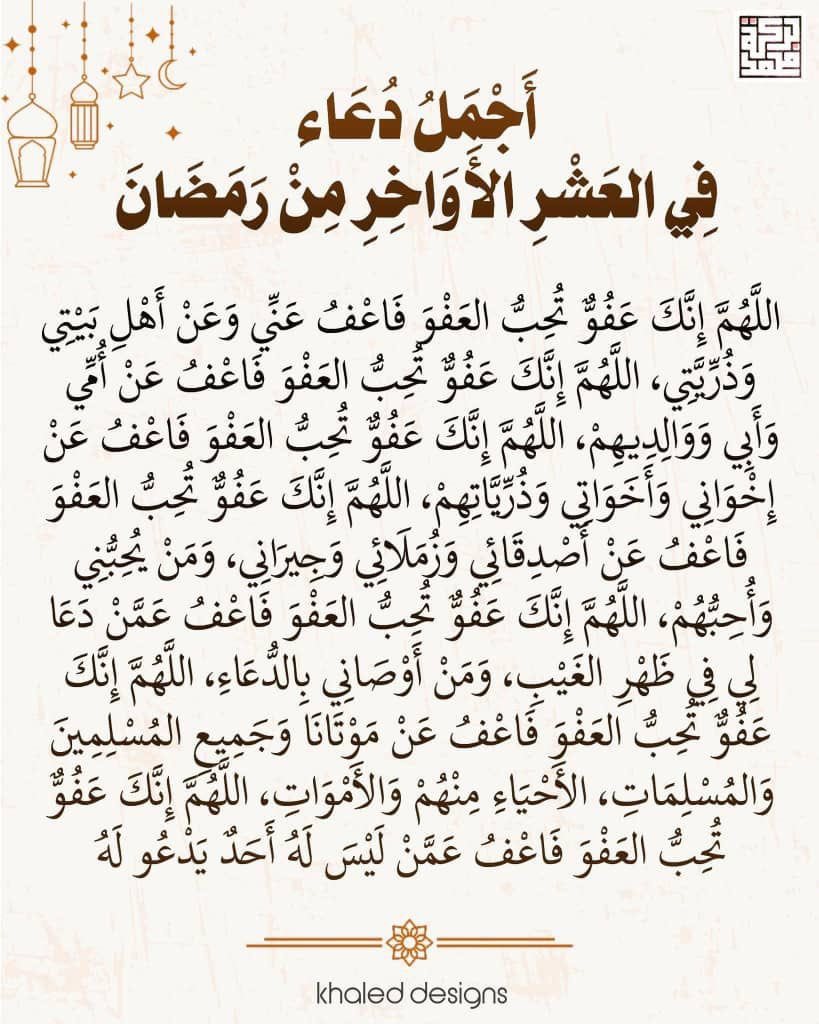 أَجْمَلُ دُعَاءٍ
فِي العَشْرِ الأَوَاخِرِ مِنْ رَمَضَانَ
اللَّهُمَّ إِنَّكَ عَفُوٌّ تُحِبُّ العَفْوَ فَاعْفُ عَنِّي وَعَنْ أَهْلِ بَيْتِي
وَذُرِّيَّتِي، اللَّهُمَّ إِنَّكَ عَفُوٌّ تُحِبُّ العَفْوَ فَاعْفُ عَنْ أُمِّي
وَأَبِي وَوَالِدِيهِمْ، اللَّهُمَّ إِنَّكَ عَفُوٌّ تُحِبُّ العَفْوَ فَاعْفُ عَنْ
إِخْوَانِي وَأَخَوَاتِي وَذُرِّيَّاتِهِمْ، اللَّهُمَّ إِنَّكَ عَفُوٌّ تُحِبُّ العَفْوَ
فَاعْفُ عَنْ أَصْدِقَائِي وَزُمَلَائِي وَجِيرَانِي، وَمَنْ يُحِبُّنِي
وَأُحِبُّهُمْ، اللَّهُمَّ إِنَّكَ عَفُوٌّ تُحِبُّ العَفْوَ فَاعْفُ عَمَّنْ دَعَا
لِي فِي ظَهْرِ الغَيْبِ، وَمَنْ أَوْصَانِي بِالدُّعَاءِ، اللَّهُمَّ إِنَّكَ
عَفُوٌّ تُحِبُّ العَفْوَ فَاعْفُ عَنْ مَوْتَانَا وَجَمِيعِ المُسْلِمِينَ
وَالمُسْلِمَاتِ، الأَحْيَاءِ مِنْهُمْ وَالأَمْوَاتِ، اللَّهُمَّ إِنَّكَ عَفُوٌّ
تُحِبُّ العَفْوَ فَاعْفُ عَمَّنْ لَيْسَ لَهُ أَحَدٌ يَدْعُو لَهُ
khaled designs